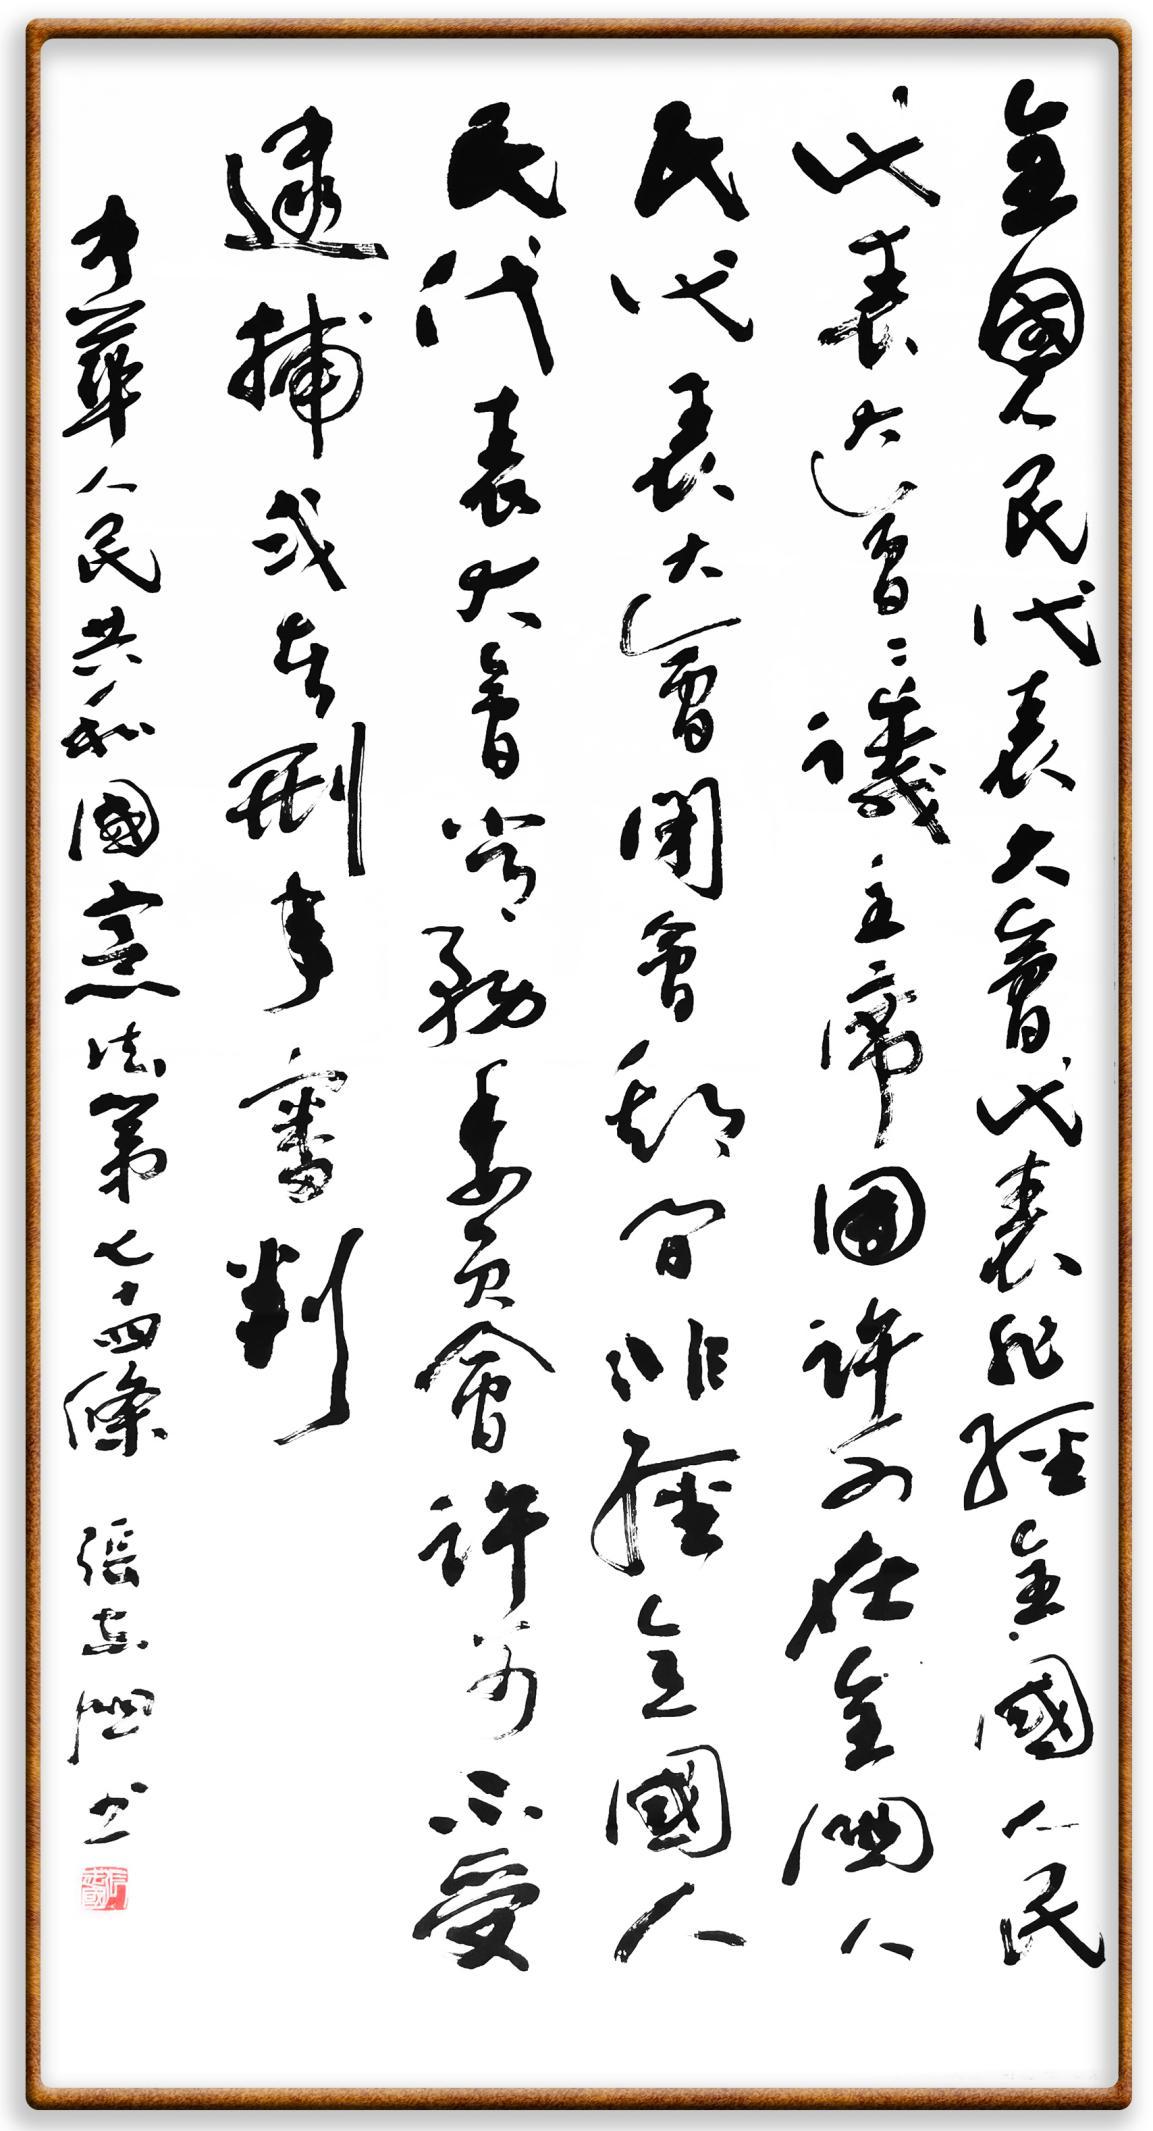 全國人民代表大會代表非經全國人民
代表大會々議主席團許可在全國人
民代表大會閉會期間非經全國人
民代表大會常務委員會許可不受
逮捕或者刑事審判
中華人民共和國憲法第七十四條 張志國书